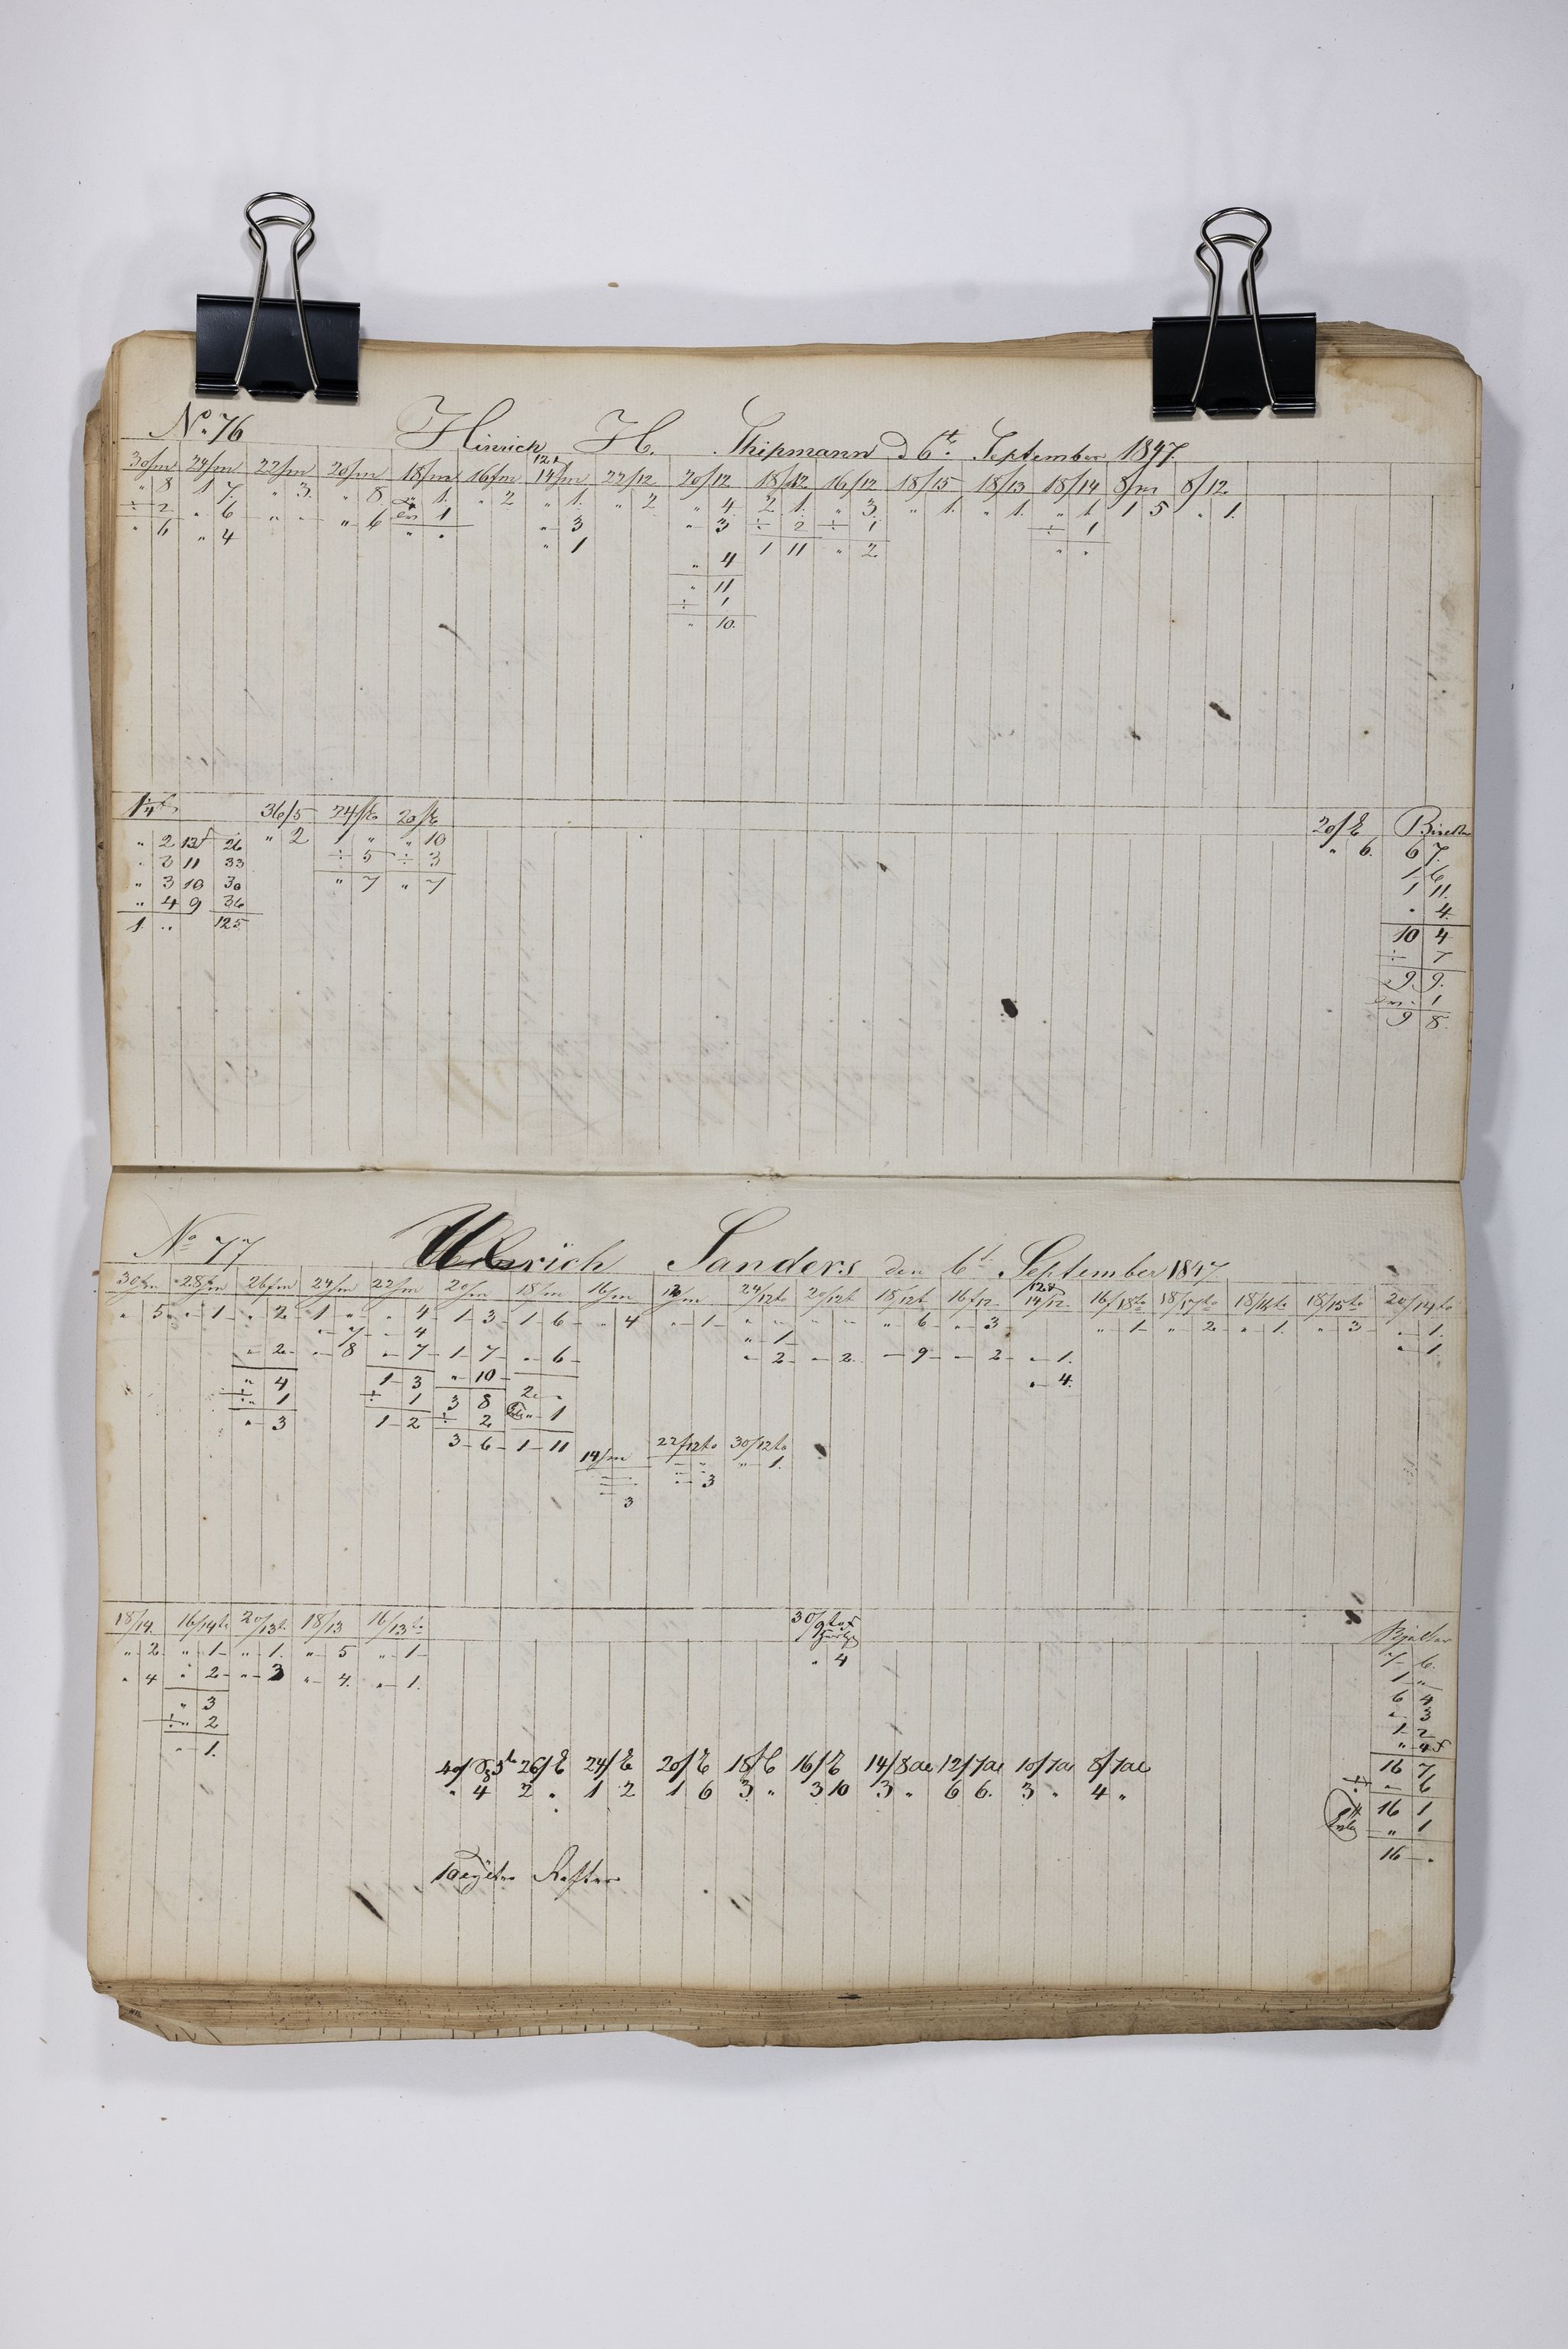 No. 76 Hinrich H. Shipmann d 6t. September 1847
12t
30/m 24/m 22/m 20/m 18/m 16/m 14/m 22/12 20/12 18/12 16/12 18/15 18/13 18/14 8/m 8/12
" 8 1 7. " 3. " 8 1. " 2 " 1. " 2 " 4 2 1. " 3. " 1. " 1. " 1 1 5 " 1.
÷ 2 " 6 " " " 6 1 " 3 " 3 ÷ 2 ÷ 1 ÷ 1
" 6 " 4 " " " 1 " 4 1 11 " 2 " "
" 11
÷ 1
" 10.
36/5 24/E 20/E 20/E
" 2 12f 26 " 2 1 " " 10 " 6. 6 7.
" 3 11 33 ÷ 5 ÷ 3 1 6
" 3 10 30 " 7 " 7 1 11.
" 4 9 36 " 4
1 " 125 10 4
÷ 7
9. 9.
1
9 8
No 77 Hinrich Sanders den 6t September 1847
12f
30/m 28/m 26/m 24/m 22/m 20/m 18/m 16/m 24/12t 20/12t 18/12t 16/12 14/12 16/18to 18/17to 18/15to 20/14to
" 5 " 1 " 2 1 " " 4 1 3 1 6 " 4 " 1 " " " " " 6 " 3 " 1 " 2 " 1. " 3 " 1.
" 7 " 4 " 1 " 1
" 2 " 8 " 7 1 7 " 6 " 2 " 2 " 9 " 2 " 1.
" 4 1 3 " 10 2 " " 4.
÷ " 1 ÷ 1 3 8 " 1
" 3 1 2 ÷ 2
3 6 1 11
14/m 22/12to 30/12to
" 1.
" 3
3
18/14 16/14t 20/13t 18/13 16/13to
" 2 " 1 " 1. " 5 " 1
" 4 " 2 " 3 " 4. " 1. " 4
" 3
÷ " 2
" 1.
7 6.
1 "
6 4
" 3
1 2
" 4
16 7
÷ " 6
16 1
" 1
16 "
26/E 24/E 20/E 18/E 16/E 14/8ae 12/7ae 10/7ae 8/7ae
" 4 2 " 1 2 1 6 3 " 3 10 3 " 6 6. 3 " 4 "